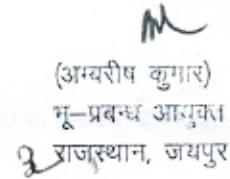 (अम्बरीष कुमार)
भू–प्रबन्ध आयुक्त
राजस्थान, जयपुर